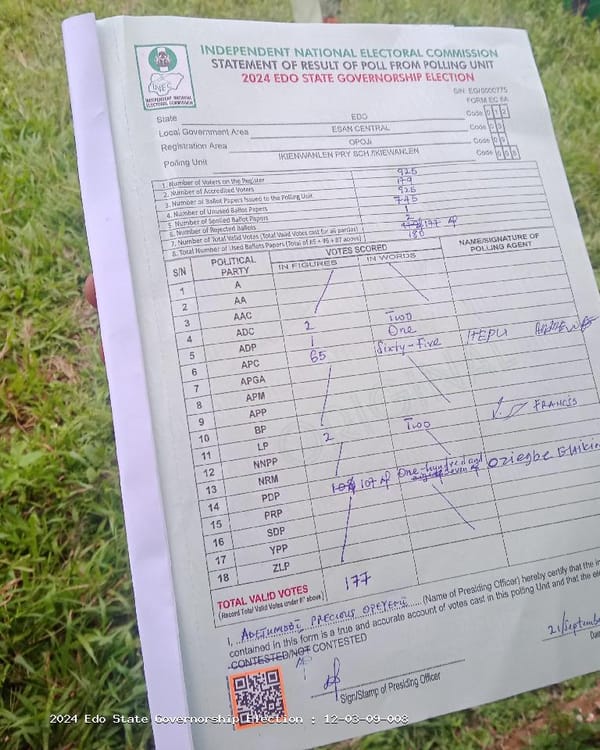 INDEPENDENT NATIONAL ELECTORAL COMMISSION
STATEMENT OF RESULT OF POLL FROM POLLING UNIT
2024 EDO STATE GOVERNORSHIP ELECTION
INEC
INDEPENDENT NATIONAL ELECTORAL COMMISSION
S/N: EG/0000775
FORM EC 8A
State EDO Code 0 1 2
Local Government Area ESAN CENTRAL Code 0 3
Registration Area OPOJI Code 0 9
Polling Unit IKIENWANLEN PRY SCH./IKIEWANLEN Code 0 0 8
1. Number of Voters on the Register 925
2. Number of Accredited Voters 179
3. Number of Ballot Papers Issued to the Polling Unit 925
4. Number of Unused Ballot Papers 745
5. Number of Spoiled Ballot Papers
6. Number of Rejected Ballots
7. Number of Total Valid Votes (Total Valid Votes cast for all parties) 177
8. Total Number of Used Ballots Papers (Total of #5 + #6 + #7 above) 180
S/N POLITICAL PARTY VOTES SCORED NAME/SIGNATURE OF POLLING AGENT
IN FIGURES IN WORDS
1 A
2 AA
3 AAC
4 ADC 2 Two
5 ADP 1 One
6 APC 65 Sixty-five
7 APGA
8 APM
9 APP
10 BP
11 LP 2 Two FRANCIS
12 NNPP
13 NRM
14 PDP 107 One-hundred and seven
15 PRP
16 SDP
17 YPP
18 ZLP
TOTAL VALID VOTES 177
(Record Total Valid Votes under #7 above)
I, ADETUNMOBI PRECIOUS OPEYEMI (Name of Presiding Officer) hereby certify that the
contained in this form is a true and accurate account of votes cast in this polling Unit and that the
CONTESTED/NOT CONTESTED
21/September
Sign/Stamp of Presiding Officer
2024 Edo State Governorship Election : 12-03-09-008